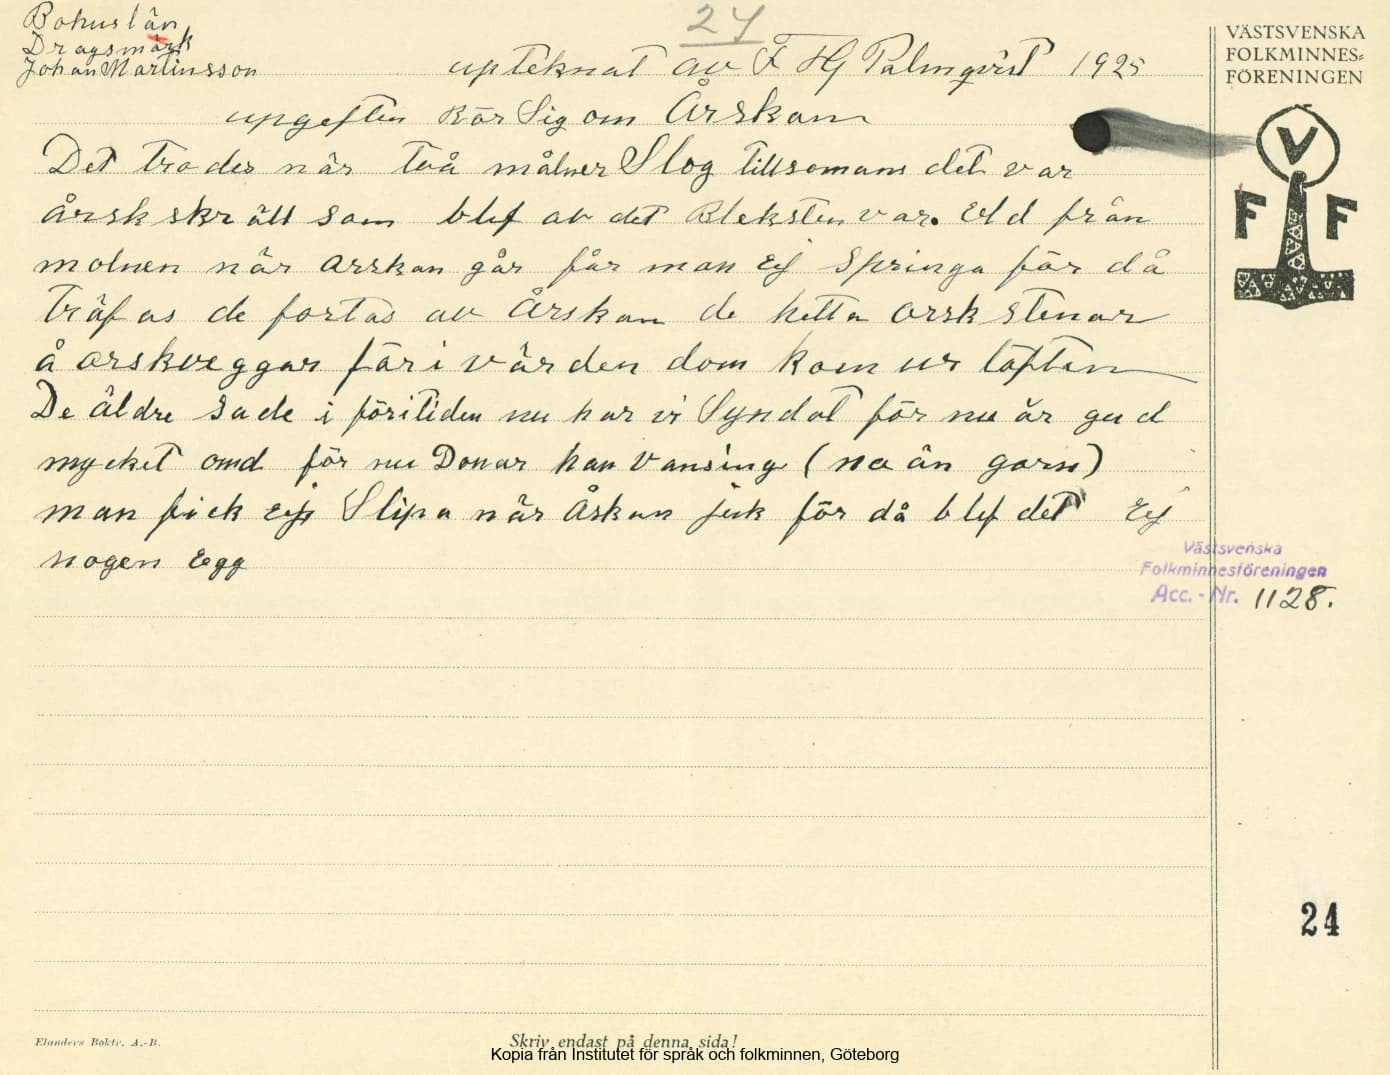 24
Bohuslän
Dragsmark
Johan Martinsson
upteknat av F Hj Palmqvist 1925
upgeften Rör Sig om Årskan
Det trodes när två målner Slog tillsomans det var
årsk skräll som blef av det Bleksten var. Eld från
molnen när arskan går får man Eij Springa för då
träfas de fortas av Årskan de hetta arsk stenar
å arskveggar för i värden dom kom ur loften
De äldre sade i föritiden nu har vi Syndat för nu är gud
mycket omd för nu Donar han Vansing (no än garn)
man fick Eij Slipa när Åskan jick för då blef det Eij
nogen Egg
VÄSTSVENSKA
FOLKMINNES-
FÖRENINGEN
V
F F
Västsvenska
Folkminnesföreningen
Acc.-Nr. 1128.
24
Elanders Boktr. A.-B.
Skriv endast på denna sida!
Kopia från Institutet för språk och folkminnen, Göteborg